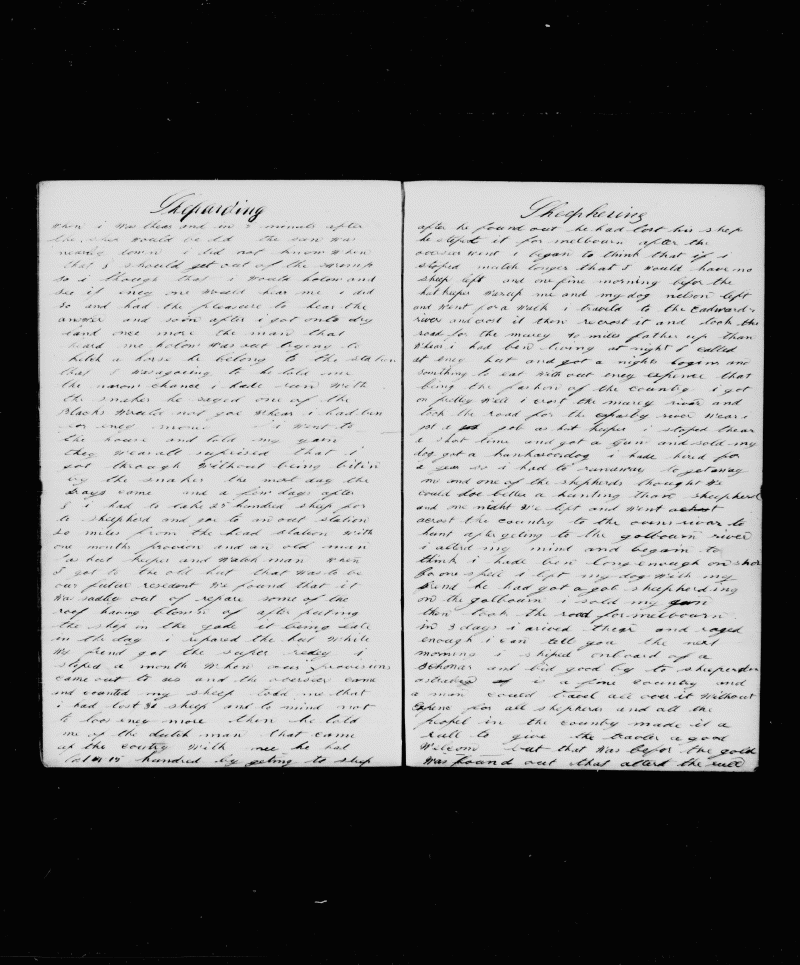 Sheparding
when i was thear and in 2 minuts after
the ship would be did the sun was
nearly down i did not know when
that I should get out of the swamp
so i though that i would holow and
see if eney one would hear me i did
so and had the pleasure to hear the
answer and soon after i got onto dry
land once more the man that
heard me holow was out trying to
ketch a horse he belong to the station
that I was agoring to he told me
the narow chance i hade run with
the snakes he sayed one of the
Blacks would not goe whear i had ben
for eney money i went to
the house and told my yarn
they wear all suprised that i
got through without being bitin
by the snakes the next day the
Drays come and a few days after
I had to take 25 hundred shep for
to shepherd and goe to an out station
20 miles from the head station with
one months provison and an old man
as hut keeper and watch man when
I got to the old hut that was to be
our futur resedent we found that it
was sadley out of repare some of the
roof having blown of after puting
the shep in the yade it being late
in the day i repared the hut while
my frend got the super redey i
stoped a month when our provisins
came out to us and the overseer came
and counted my sheep told me that
i had lost 30 sheep and to mind not
to loos eney more then he told
me of the dutch man that came
up the contry with me he lost
15 hundred by geting to slep
Sheephering
after he found out he had lost his shep
he sloped it for melbourn after the
overseer went i began to think that if i
stoped mutch longer that I would have no
sheep left and one fine morning befor the
hut keeper was up me and my dog nelson left
and went for a walk i travild to the Eadwards
river and crost it then recrost it and took the
road for the murey 40 miles father up than
whear i had ben living at night I called
at eney hut and got a nights logen and
something to eat without eney expence that
being the fashon of the country i got
on pretty well i crost the murey river and
took the road for the river wear i
got a job as hut keeper i stoped thear
a short time and got a gun and sold my
dog got a hankaroo dog i hade hired for
a year so i had to runaway to get away
me and one of the shepherds thought we
could doe better a hunting than sheepherd
and one night we left and went
acrost the country to the ovens rivar to
hunt after geting to the golbourn river
i alterd my mind and begarn to
think i hade ben long enough on shor
for one spell i left my dog with my
frend he had got a gob shepherding
on the golbourn i sold my gun
then took the road for melbourn
in 3 days i arived thear and raged
enough i can tell you the next
morning i shiped onboard of a
schonar and bid good by to sheeperding
astralea is a fine country and
a man could travel all over it without
Expence for all shepherds and all the
peopel in the country made it a
rull to give the traveler a good
wellcom but that was befor the gold
was found out that alterd the rull